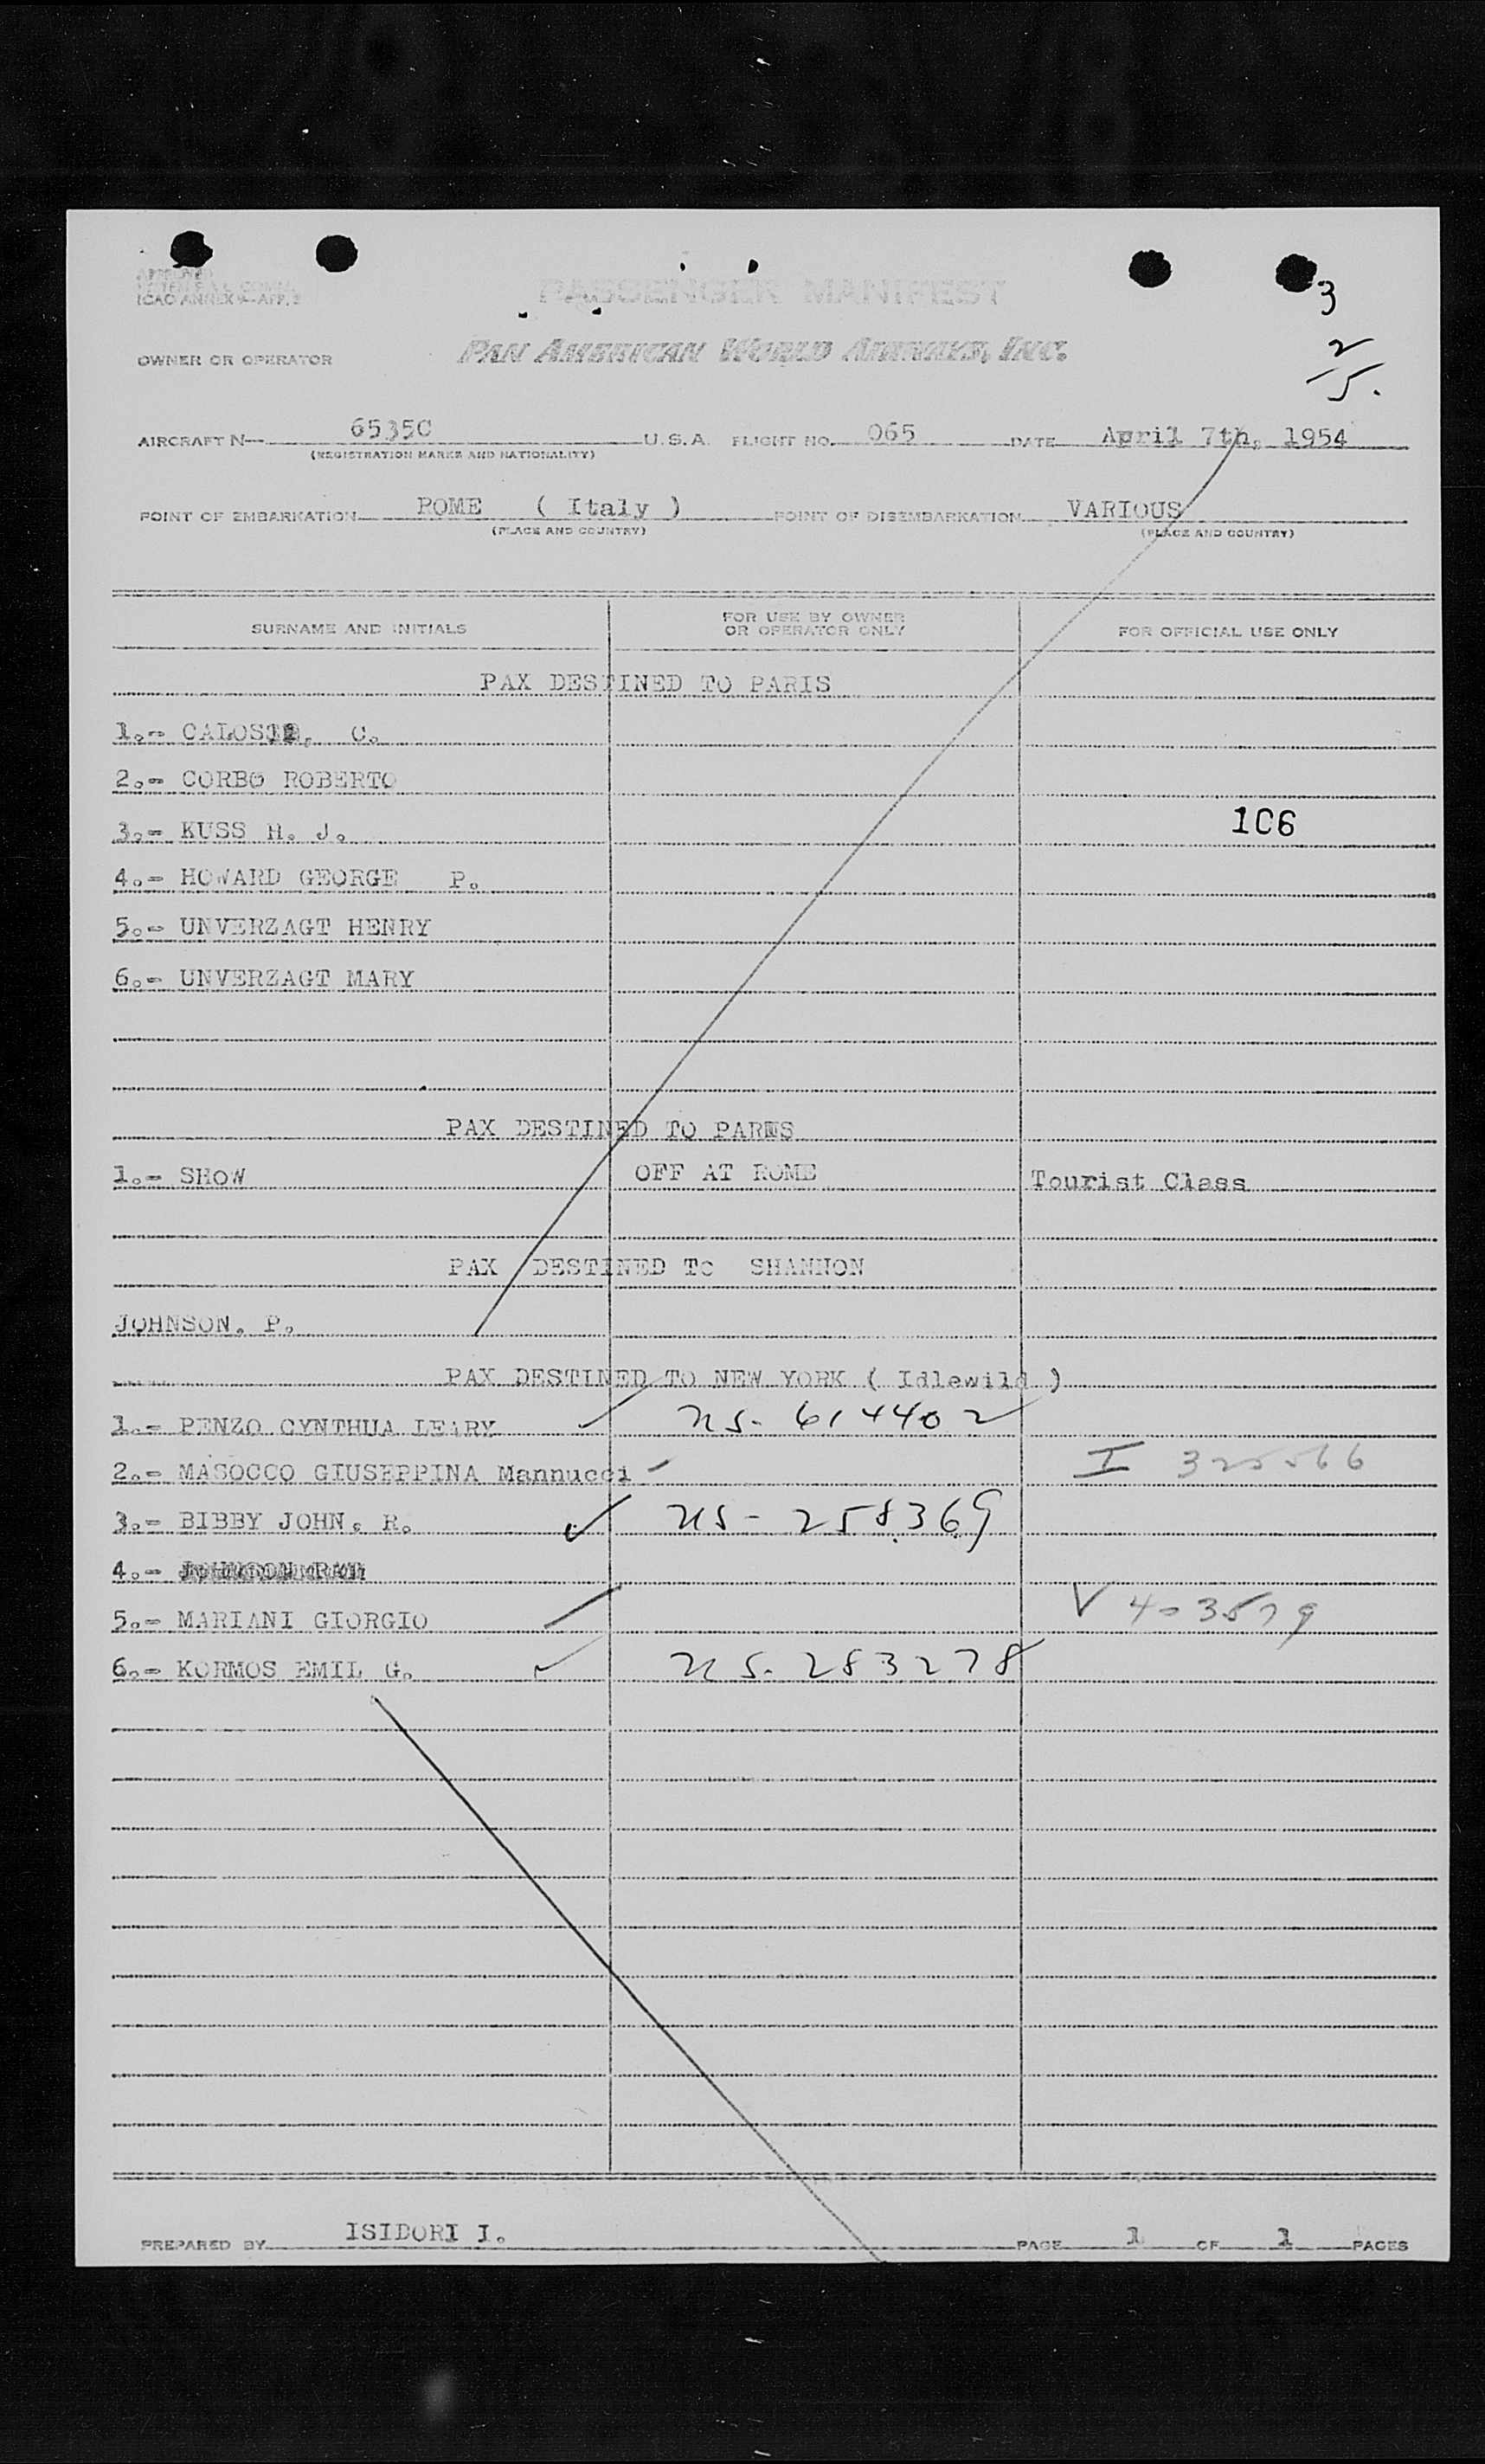 3
APPROVED
ICAO ANNEX 9-APP. 2
PASSENGER MANIFEST
2
5.
OWNER OR OPERATOR PAN AMERICAN WORLD AIRWAYS, INC.
AIRCRAFT N— 6535C U.S.A. FLIGHT NO. 065 DATE April 7th, 1954
(REGISTRATION MARKS AND NATIONALITY)
POINT OF EMBARKATION ROME ( Italy ) POINT OF DISEMBARKATION VARIOUS
(PLACE AND COUNTRY) (PLACE AND COUNTRY)
SURNAME AND INITIALS FOR USE BY OWNER OR OPERATOR ONLY FOR OFFICIAL USE ONLY
PAX DESTINED TO PARIS
1.- C.
2.- CORBO ROBERTO
3.- KUSS H. J. 106
4.- HOWARD GEORGE P.
5.- UNVERZAGT HENRY
6.- UNVERZAGT MARY
PAX DESTINED TO PARIS
1.- SHOW OFF AT ROME Tourist Class
PAX DESTINED To SHANNON
JOHNSON. P.
PAX DESTINED TO NEW YORK ( Idlewild )
1.- PENZO CYNTHUA LEARY US- 614402
2.- MASOCCO GIUSEPPINA Mannucci I 325566
3.- BIBBY JOHN. R. US- 258369
4.-
5.- MARIANI GIORGIO V 403579
6.- KORMOS EMIL G. US. 283278
PREPARED BY ISIDORI I. PAGE 1 OF 1 PAGES